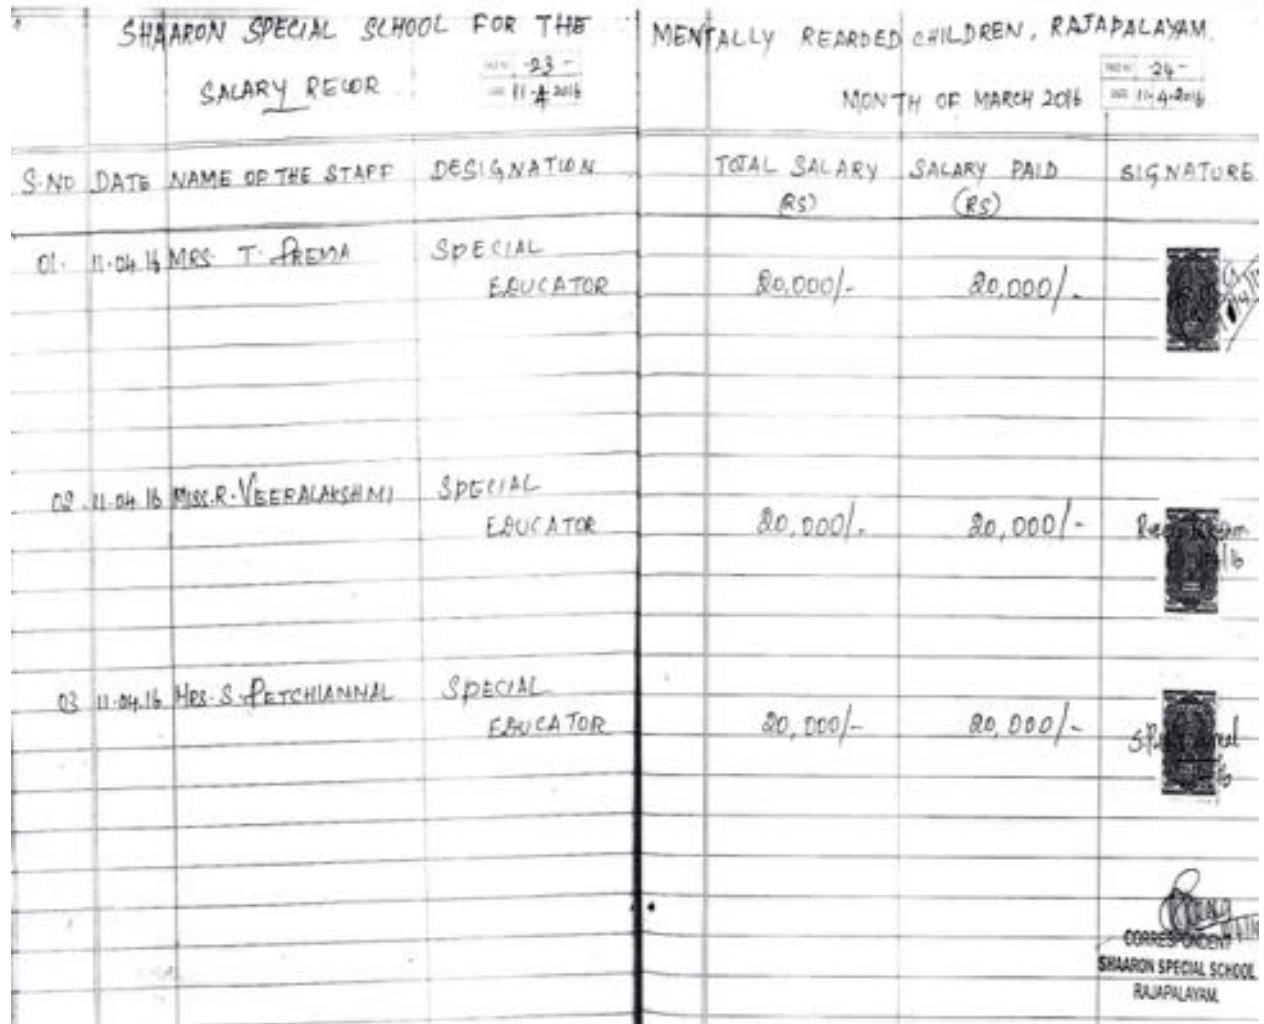 SHAARON SPECIAL SCHOOL FOR THE MENTALLY REARDED CHILDREN, RAJAPALAYAM.
SALARY RECOR
-23-
11-4-2016
MONTH OF MARCH 2016
-24-
11-4-2016
S.NO DATE NAME OF THE STAFF DESIGNATION TOTAL SALARY (RS) SALARY PAID (RS) SIGNATURE
01. 11.04.16 MRS. T. PREMA SPECIAL
EDUCATOR 20,000/- 20,000/-
02. 11.04.16 MISS.R.VEERALAKSHMI SPECIAL
EDUCATOR 20,000/- 20,000/-
03 11.04.16 MRS. S. PETCHIAMMAL SPECIAL
EDUCATOR 20,000/- 20,000/-
CORRESPONDENT
SHAARON SPECIAL SCHOOL
RAJAPALAYAM.